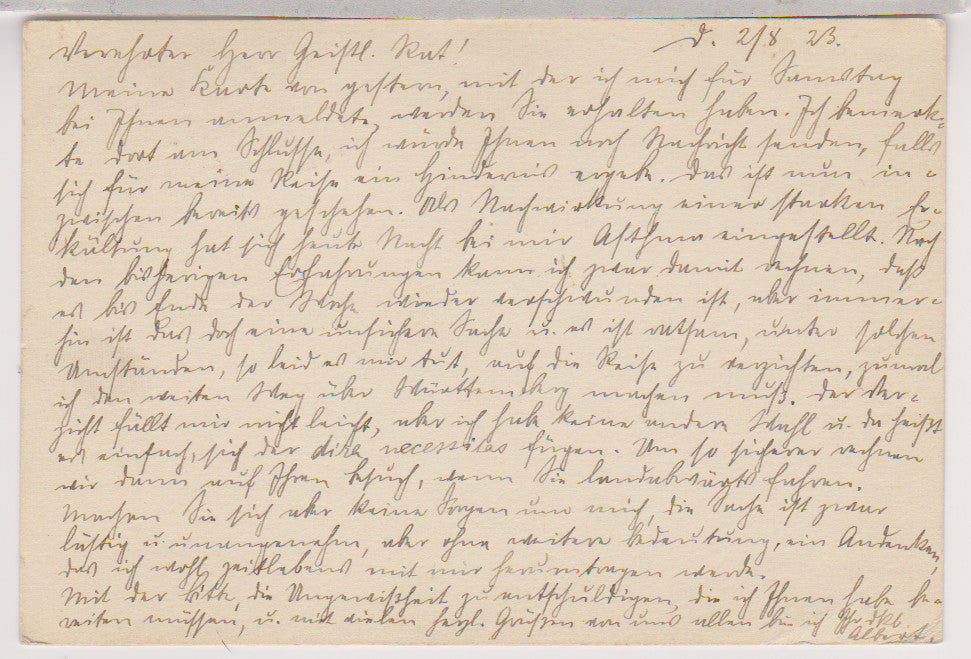 D. 2/8 23.
Verehrter Herr Geistl. Rat!
Meine Karte von gestern, mit der ich mich für Samstag
bei Ihnen anmeldete, werden Sie erhalten haben. Ich bemerk-
te dort am Schlusse, ich würde Ihnen noch Nachricht senden, falls
sich für meine Reise ein Hindernis ergebe. Das ist nun in-
zwischen bereits geschehen. Als Nachwirkung einer starken Er-
kältung hat sich heute Nacht bei mir Asthma eingestellt. Nach
den bisherigen Erfahrungen kann ich zwar damit rechnen, daß
es bis Ende der Woche wieder verschwunden ist, aber immer-
hin ist das doch eine unsichere Sache u. es ist ratsam, unter solchen
Umständen, so leid es mir tut, auf die Reise zu verzichten, zumal
ich den weiten Weg über Württemberg machen muß. Der Ver-
zicht fällt mir nicht leicht, aber ich habe keine andere Wahl u. da heißt
es einfach, sich der dira necessitas fügen. Um so sicherer rechnen
wir dann auf Ihren Besuch, wenn Sie landabwärts fahren.
Machen Sie sich aber keine Sorgen um mich, die Sache ist zwar
lästig u. unangenehm, aber ohne weitere Bedeutung, ein Andenken,
das ich wohl zeitlebens mit mir herumtragen werde.
Mit der Bitte, die Ungewißheit zu entschuldigen, die ich Ihnen habe be-
reiten müssen, u. mit vielen herzl. Grüßen von uns allen bin ich Ihr dkb.
Albert.